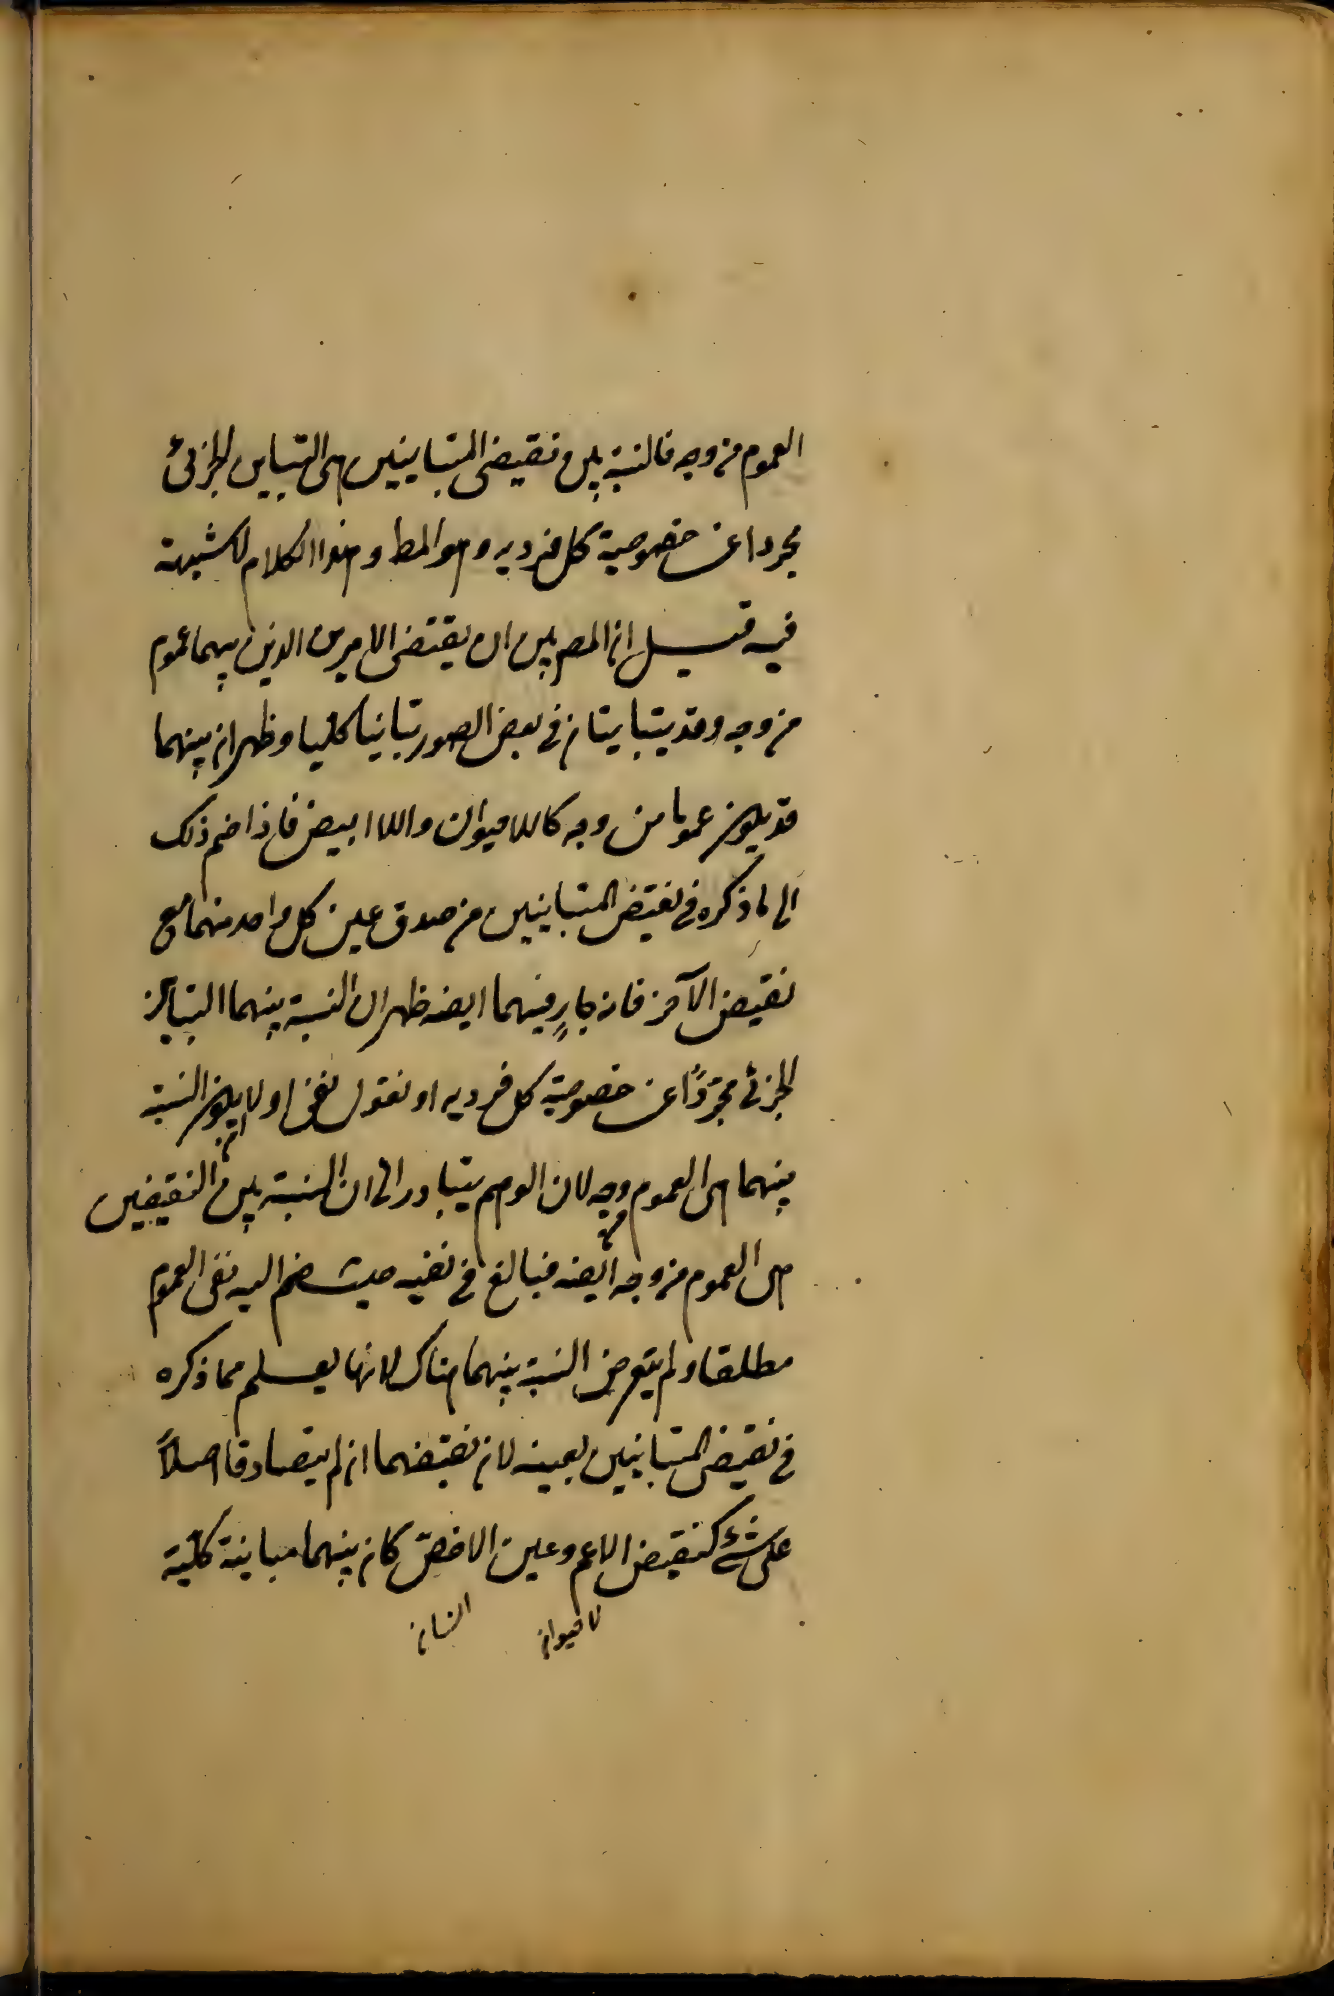 العموم من وجه فالنسبة بين نقيضى المتباينين هى التباين الجزئى
مجردا عن خصوصية كل فرديه وهو المط وهذا الكلام لا شبهة
فيه قيل ان المص بين ان نقيضى الامرين الذين بينهما عموم
من وجه وقد يتباينان فى بعض الصور تباينا كليا وظهر ان بينهما
قد يكون عموما من وجه كاللاحيوان واللاابيض فاذا ضم ذلك
الى ما ذكره فى نقيض المتباينين من صدق عين كل واحد منهما مع
نقيض الآخر فانه جارٍ فيهما ايضه ظهر ان النسبة بينهما التباين
الجزئى مجرّدًا عن خصوصية كل فرديه او نقول نفى اولا ان يكون النسبة
بينهما هى العموم من وجه لان الوهم يتبادر الى ان النسبة بين النقيضين
هى العموم من وجه ايضه فبالغ فى نفيه حيث ضم اليه نفى العموم
مطلقا ولم يتعرض النسبة بينهما هناك لانها يعلم مما ذكره
فى نقيض المتباينين بعينه لان نقيضهما ان لم يتصادقا اصلاً
على شئ كنقيض الاعم وعين الاخصّ كان بينهما مباينة كليّة
لا حيوان
انسان